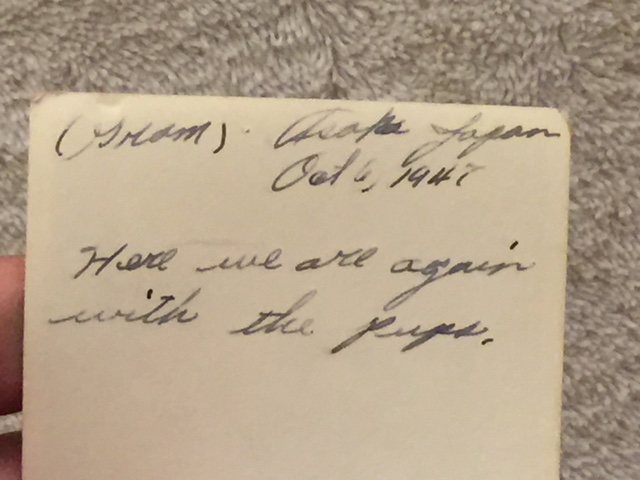 (Gram). Osaka Japan
Oct 6, 1947
Here we are again
with the pups.